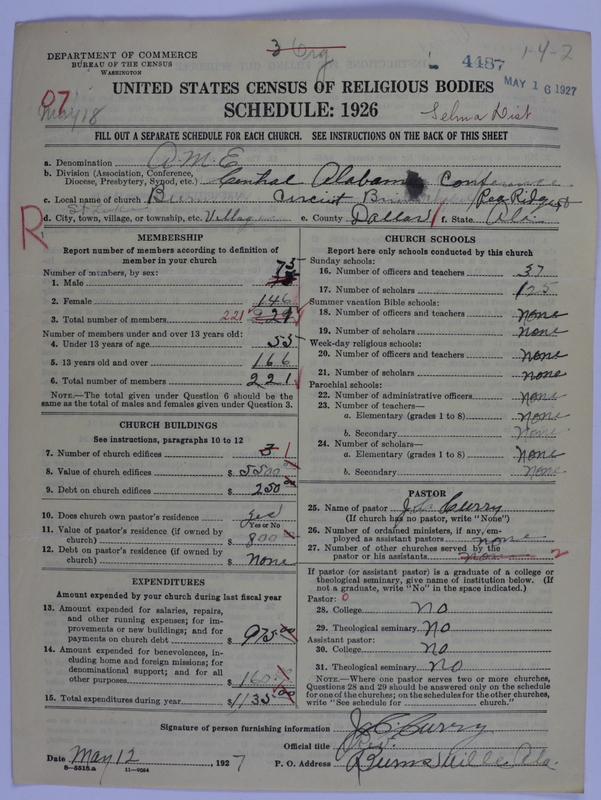 3 Org
DEPARTMENT OF COMMERCE
BUREAU OF THE CENSUS
WASHINGTON
4487
1-4-2
MAY 16 1927
UNITED STATES CENSUS OF RELIGIOUS BODIES
SCHEDULE: 1926
07
May 18
Selma Dist
FILL OUT A SEPARATE SCHEDULE FOR EACH CHURCH. SEE INSTRUCTIONS ON THE BACK OF THIS SHEET
a. Denomination A.M.E.
b. Division (Association, Conference, Diocese, Presbytery, Synod, etc.) Central Alabama Conference
c. Local name of church Circuit Pea Ridge
d. City, town, village, or township, etc. Village e. County Dallas f. State Ala
R
MEMBERSHIP
Report number of members according to definition of
member in your church
Number of members, by sex:
1. Male 75
2. Female 146
3. Total number of members 221 221
Number of members under and over 13 years old:
4. Under 13 years of age 55
5. 13 years old and over 166
6. Total number of members 221
NOTE.—The total given under Question 6 should be the
same as the total of males and females given under Question 3.
CHURCH BUILDINGS
See instructions, paragraphs 10 to 12
7. Number of church edifices 3 1
8. Value of church edifices $ 5500
9. Debt on church edifices $ 250 00
10. Does church own pastor's residence yes
Yes or No
11. Value of pastor's residence (if owned by
church) $ 800
12. Debt on pastor's residence (if owned by
church) $ None
EXPENDITURES
Amount expended by your church during last fiscal year
13. Amount expended for salaries, repairs,
and other running expenses; for im-
provements or new buildings; and for
payments on church debt $ 975 00
14. Amount expended for benevolences, in-
cluding home and foreign missions; for
denominational support; and for all
other purposes $ 160
15. Total expenditures during year $ 1135 00
CHURCH SCHOOLS
Report here only schools conducted by this church
Sunday schools:
16. Number of officers and teachers 37
17. Number of scholars 125
Summer vacation Bible schools:
18. Number of officers and teachers none
19. Number of scholars none
Week-day religious schools:
20. Number of officers and teachers none
21. Number of scholars none
Parochial schools:
22. Number of administrative officers none
23. Number of teachers—
a. Elementary (grades 1 to 8) none
b. Secondary none
24. Number of scholars—
a. Elementary (grades 1 to 8) none
b. Secondary none
PASTOR
25. Name of pastor J.C. Curry
(If church has no pastor, write "None")
26. Number of ordained ministers, if any, em-
ployed as assistant pastors none
27. Number of other churches served by the
pastor or his assistants none 2
If pastor (or assistant pastor) is a graduate of a college or
theological seminary, give name of institution below. (If
not a graduate, write "No" in the space indicated.)
Pastor: 0
28. College no
29. Theological seminary No
Assistant pastor:
30. College no
31. Theological seminary no
NOTE.—Where one pastor serves two or more churches,
Questions 28 and 29 should be answered only on the schedule
for one of the churches; on the schedules for the other churches,
write "See schedule for church."
Signature of person furnishing information J C Curry
Official title
Date May 12, 1927
P. O. Address Burnsville, Ala.
8-5518a 11-9084